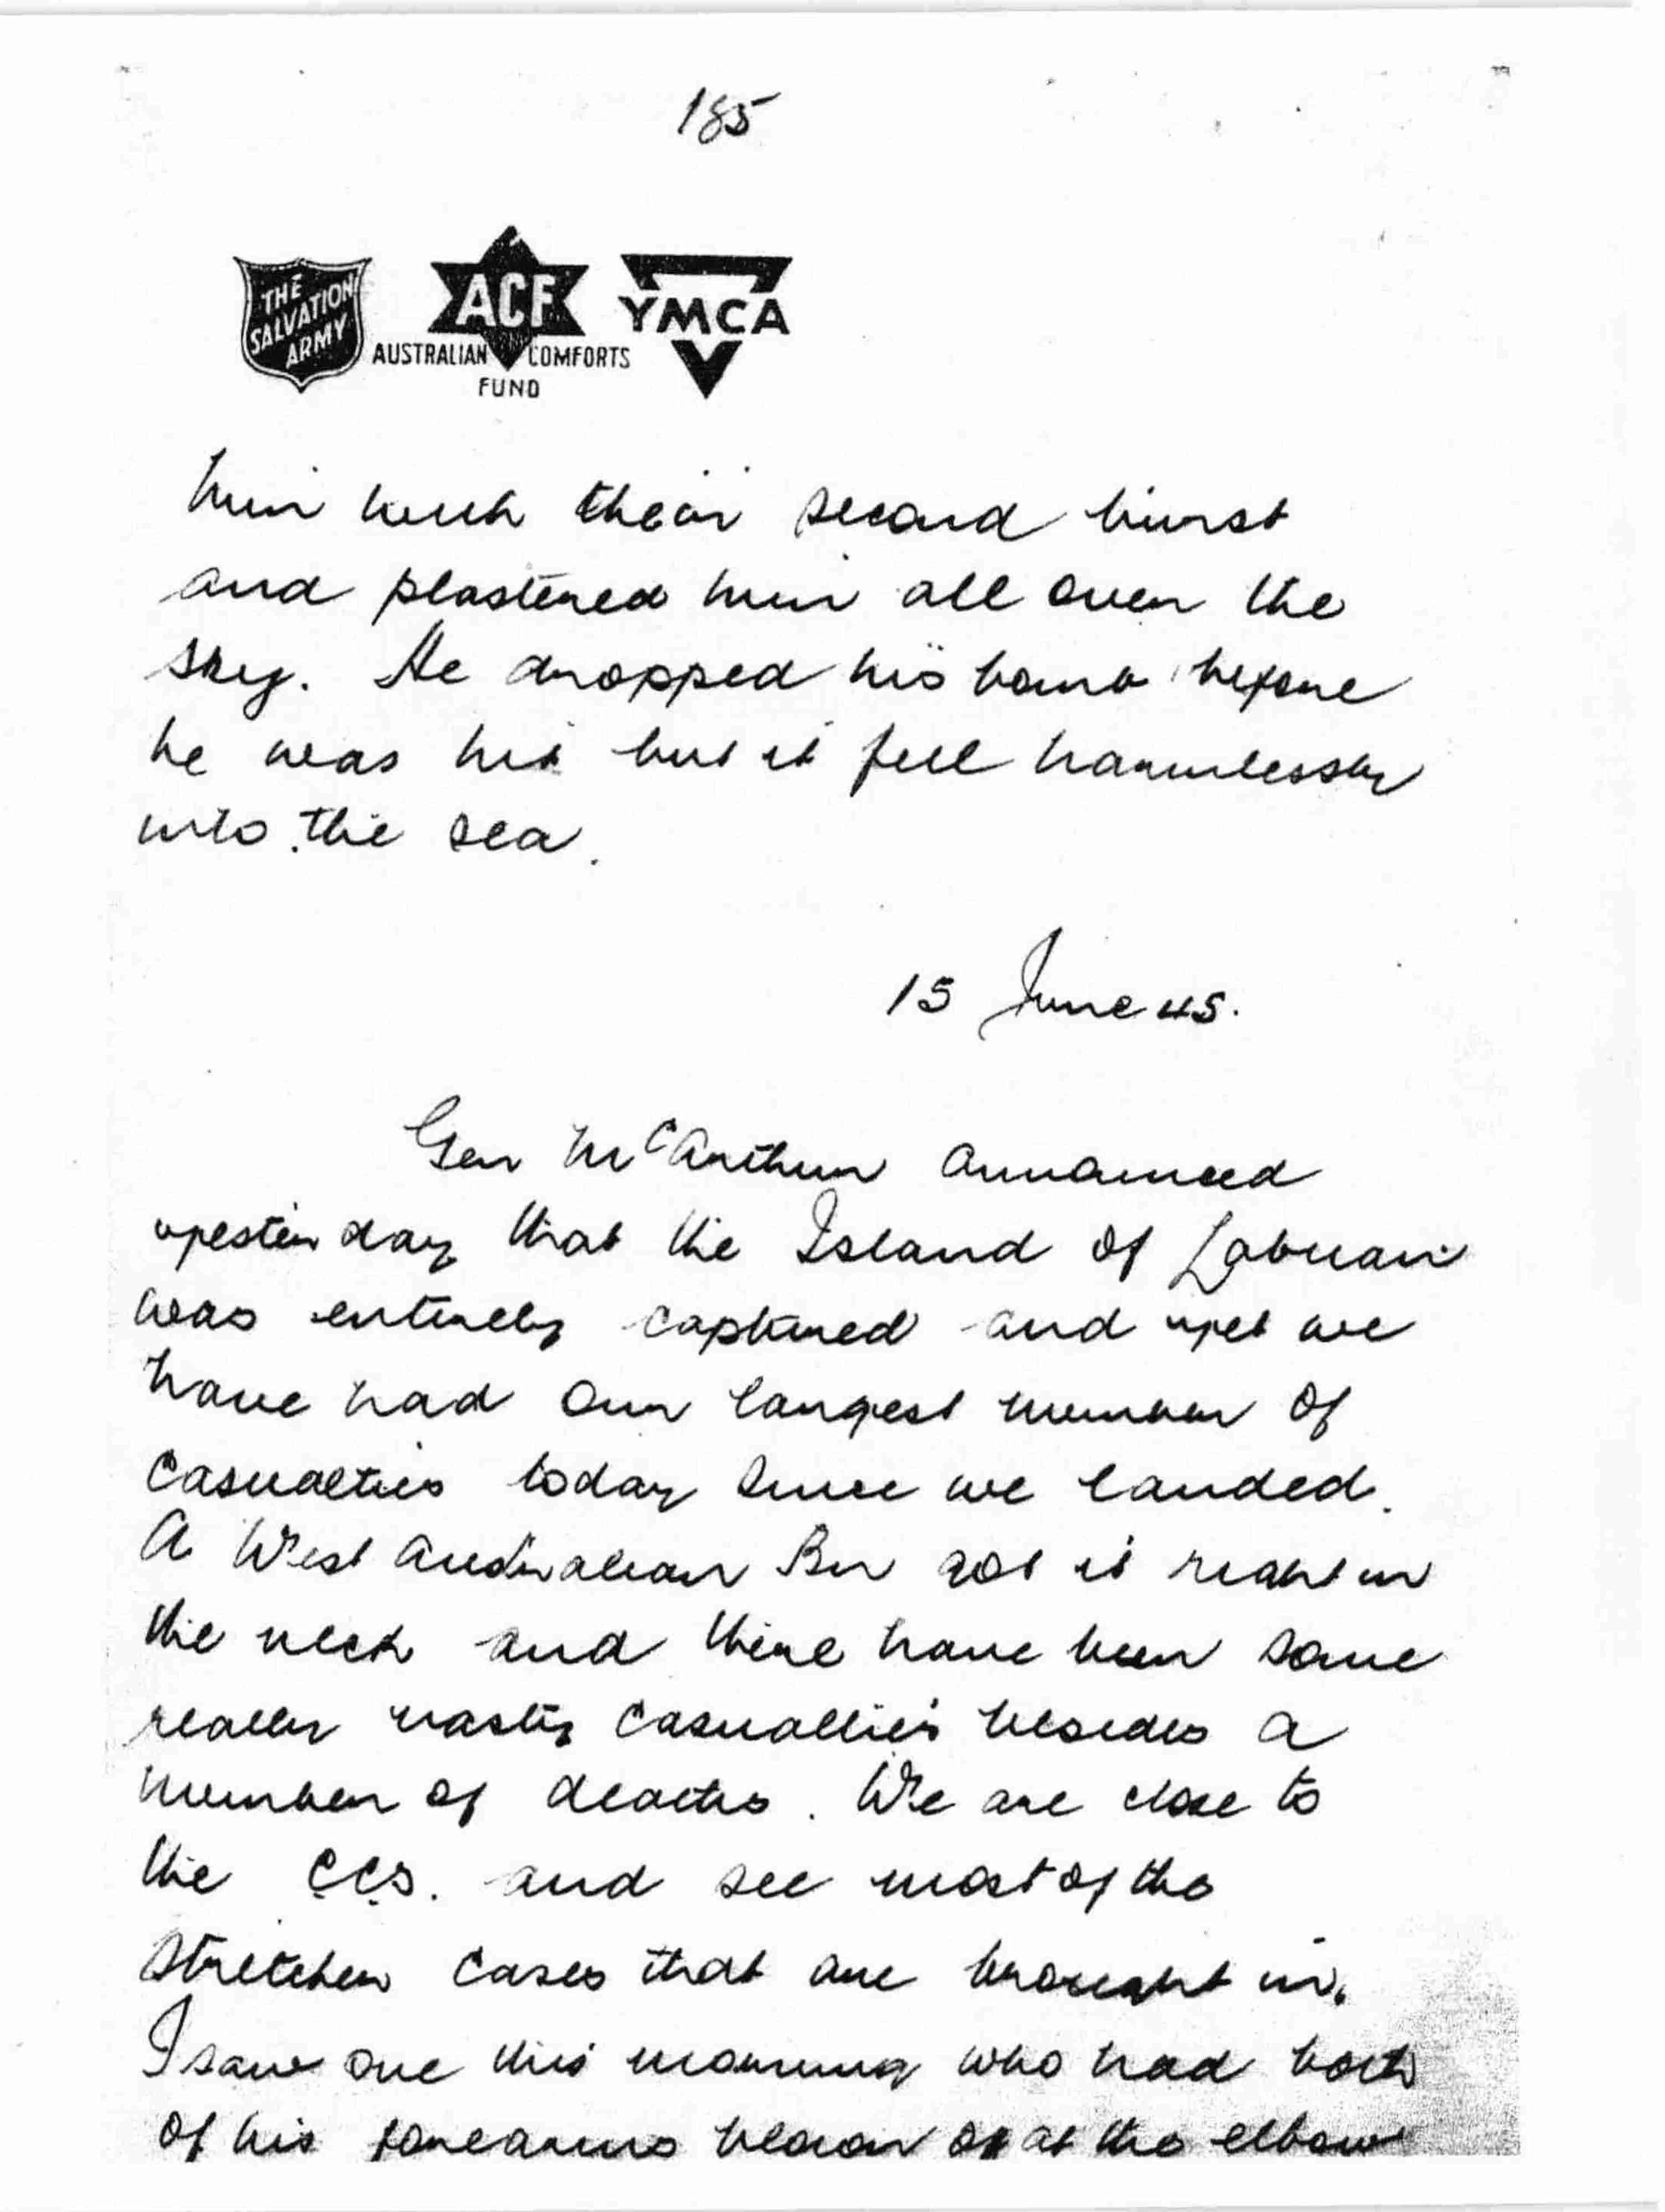 185
THE
SALVATION
ARMY
ACF
AUSTRALIAN COMFORTS
FUND
YMCA
him with their second burst
and plastered him all over the
sky. He dropped his bomb before
he was hit but it fell harmlessly
into the sea.
15 June 45.
Gen McArthur announced
yesterday that the Island of Labuan
was entirely captured and yet we
have had our largest number of
casualties today since we landed.
A West Australian Bn got it right in
the neck and there have been some
really nasty casualties besides a
number of deaths. We are close to
the CCS. and see most of the
stretcher cases that are brought in.
I saw one this morning who had both
of his forearms blown off at the elbow